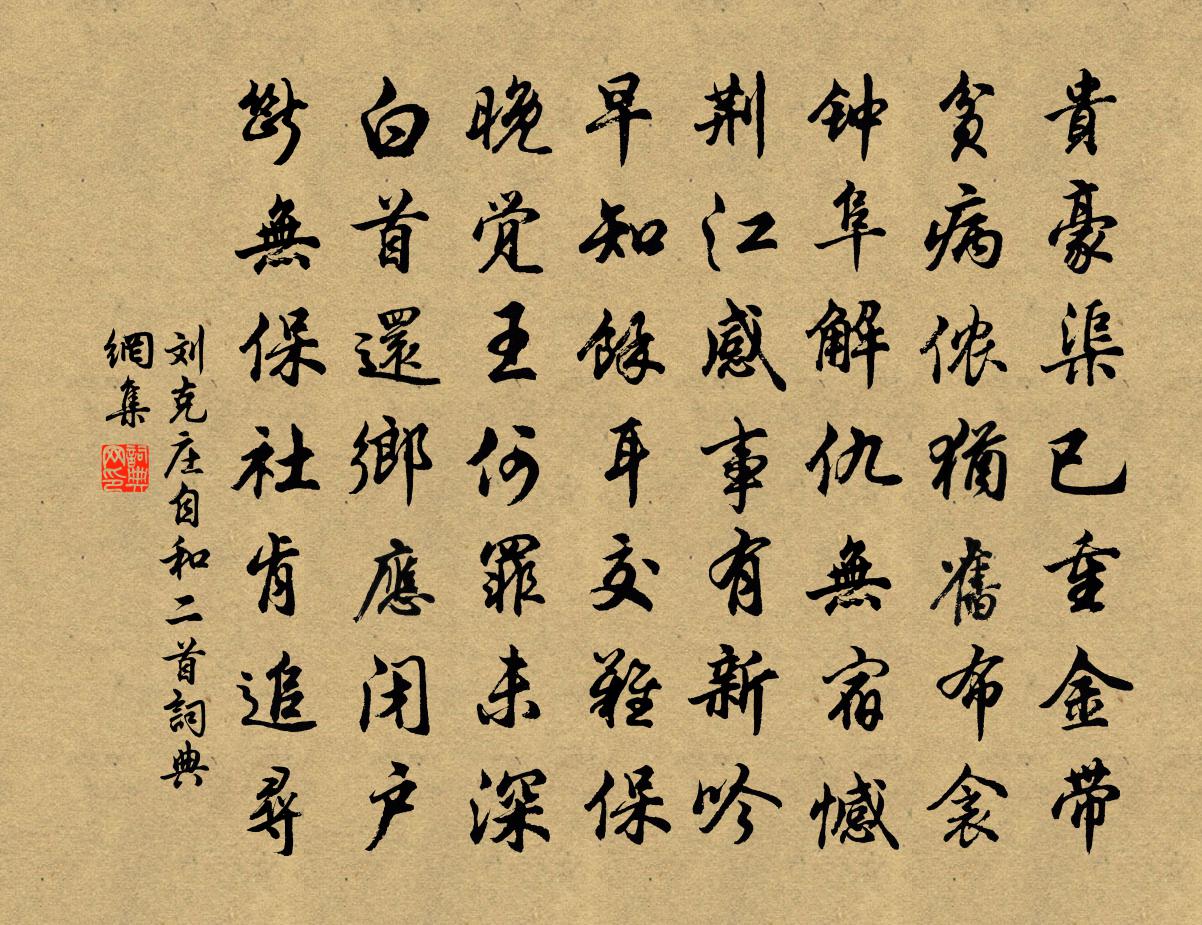 貴豪渠已重金带
贫病侬猶舊布衾
钟阜解仇無宿憾
荆江感事有新吟
早知餘耳交難保
晚觉王何罪未深
白首還鄉應闭户
斷無保社肯追尋
刘克庄自和二首詞典
網集
詞典
网印